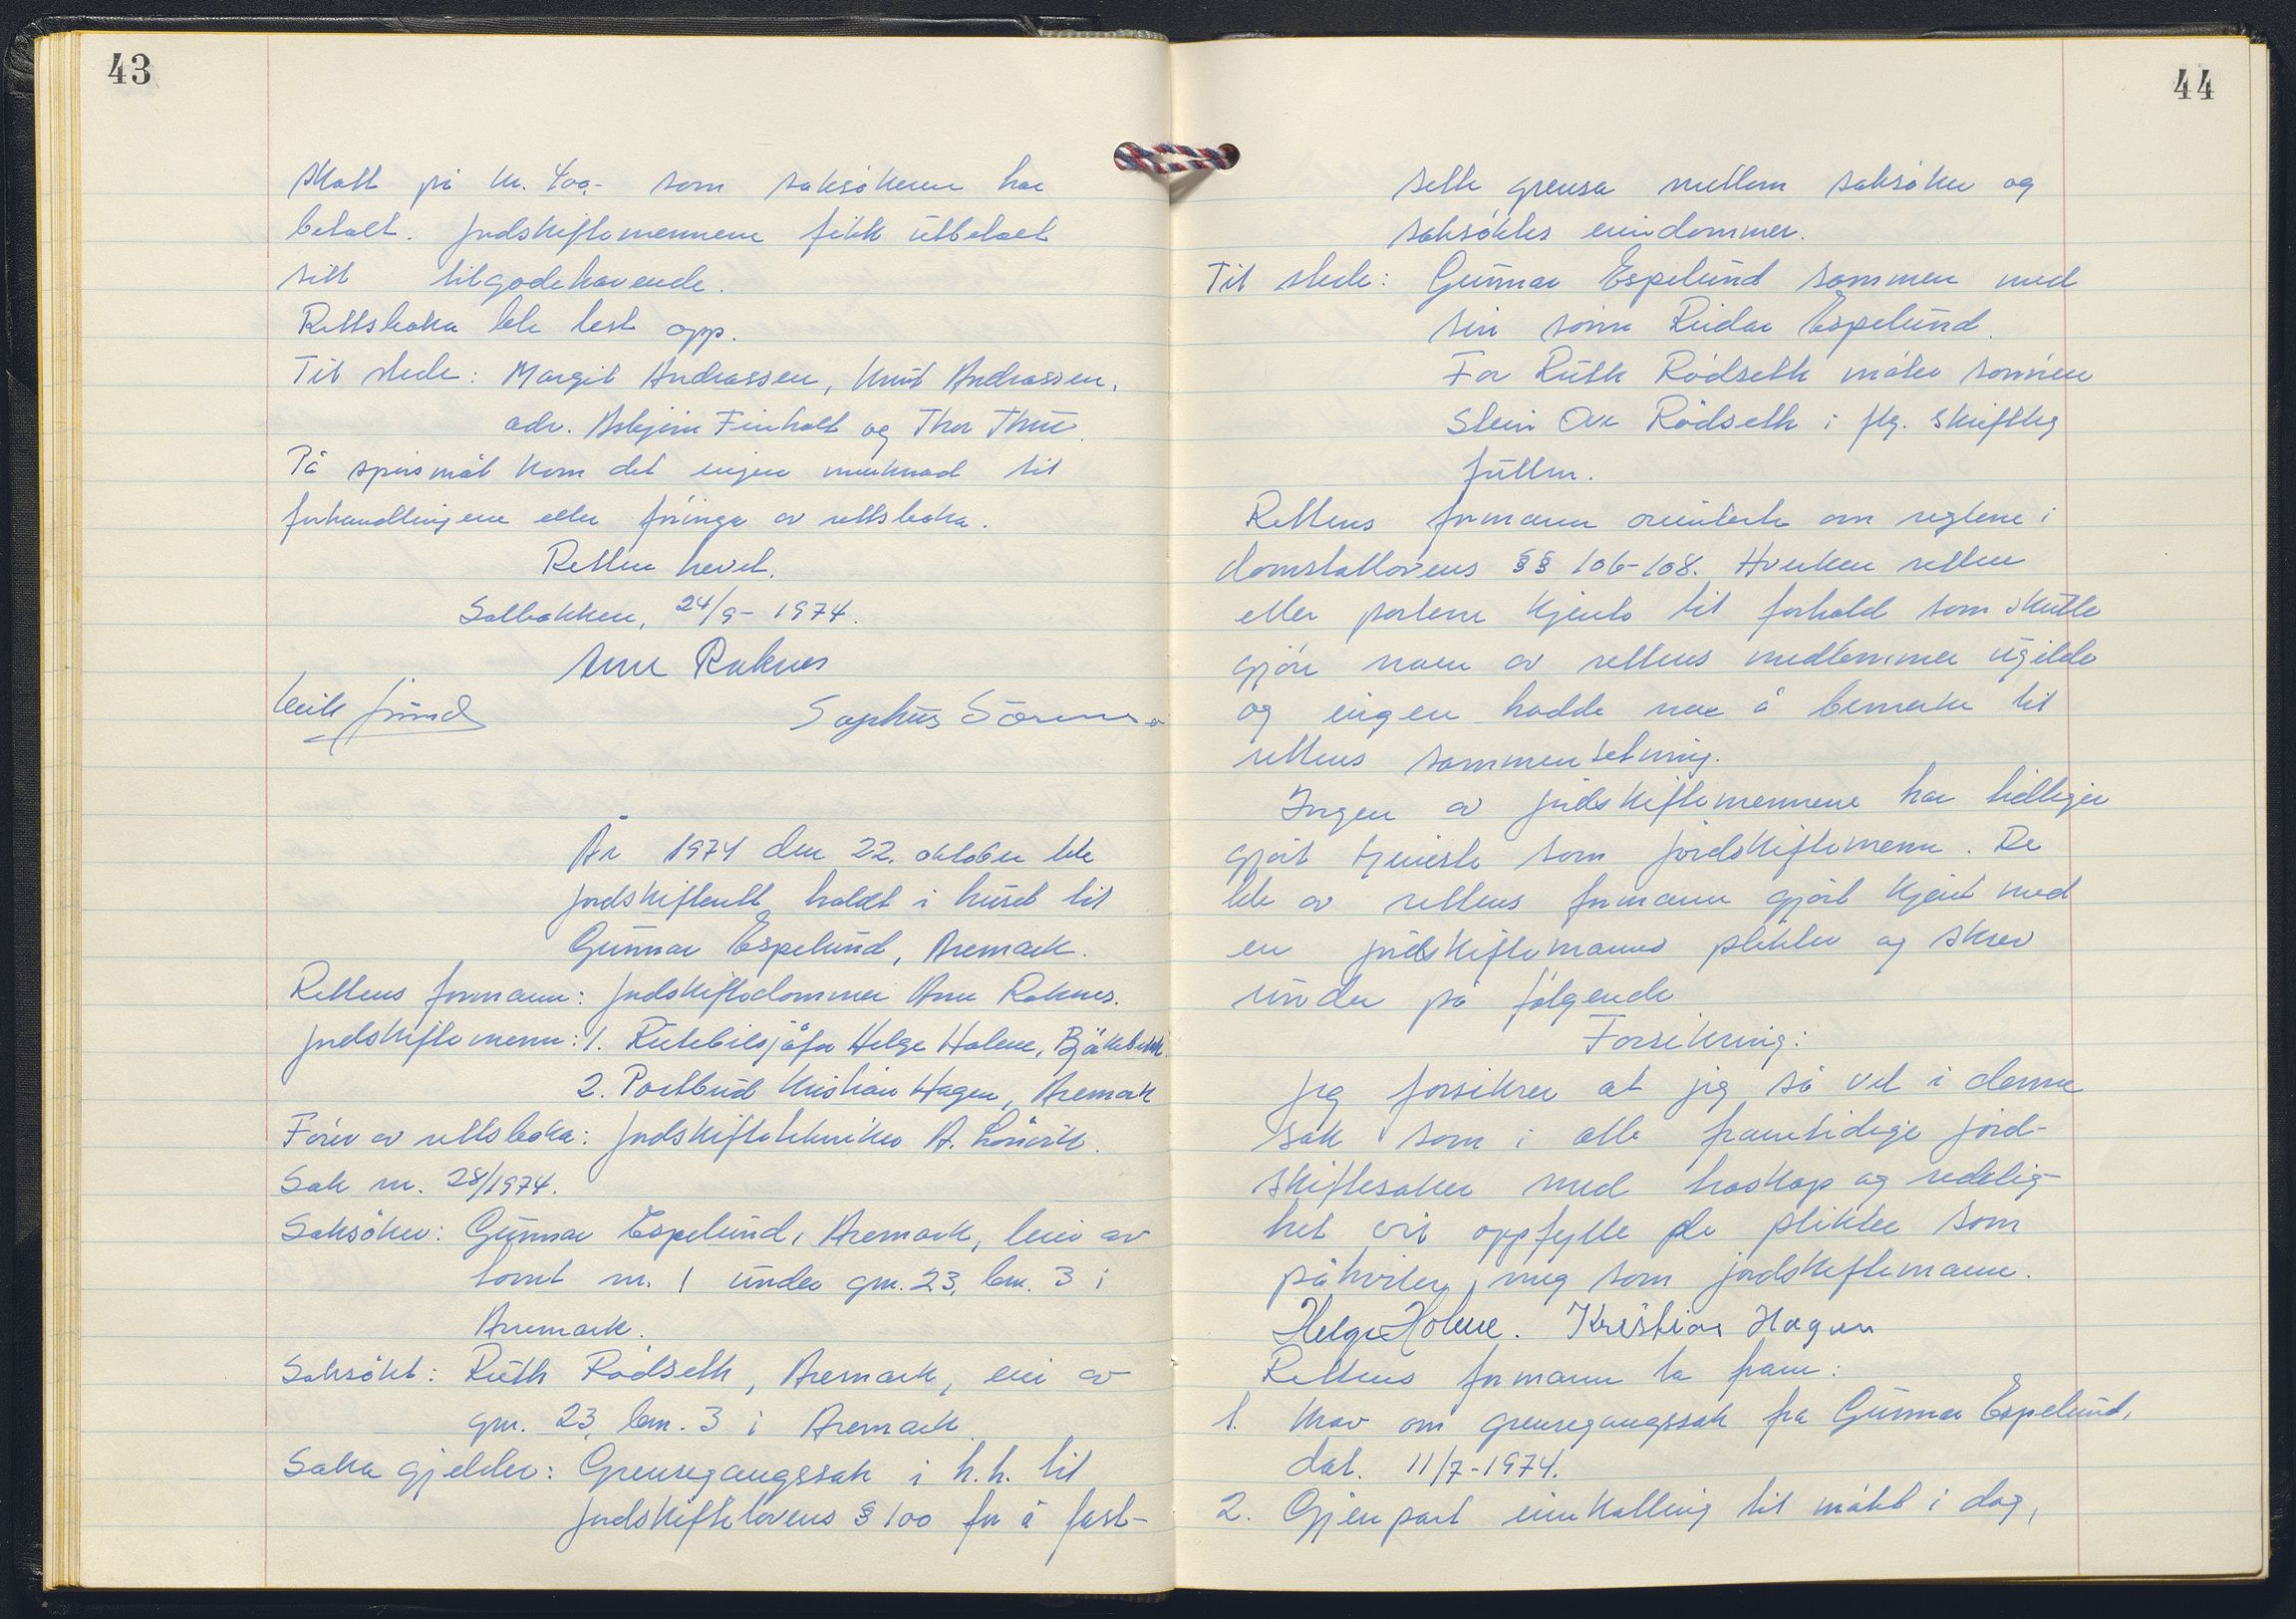 43
skott på kr. 400,- som saksökeren har
betalt. Jordskiftemennene fikk utbetalt
sitt tilgodehavende.
Rettsboka ble lest opp.
Til stede: Margit Andreassen, Knut Andreassen,
adv. Asbjörn Finholt og Thor Thue.
På spörsmål kom det ingen merknad til
forhandlingene eller föringa av rettsboka.
Retten hevet.
Solbakken, 24/9-1974.
Arne Raknes
Sophus Sörensen
År 1974 den 22. oktober ble
jordskifterett holdt i huset til
Gunnar Espelund, Aremark.
Rettens formann: Jordskiftedommer Arne Raknes.
Jordskiftemenn: 1. Rutebilsjåför Helge Holene, Bjärkebekk
2. Postbud Kristian Hagen, Aremark
Förer av rettsboka: Jordskiftetekniker A. Lönvik.
Sak nr. 28/1974.
Saksöker: Gunnar Espelund, Aremark, eier av
tomt nr. 1 under gnr. 23, bnr. 3 i
Aremark.
Saksökt: Ruth Rödseth, Aremark, eier av
gnr. 23, bnr. 3 i Aremark.
Saka gjelder: Grensegangssak i h.h. til
jordskiftelovens § 100 for å fast-
44
sette grensa mellom saksöker og
saksöktes eiendommer.
Til stede: Gunnar Espelund sammen med
sin sönn Reidar Espelund.
For Ruth Rödseth möter sönnen
Stein Ove Rödseth i flg. skriftleg
fullm.
Rettens formann orienterte om reglene i
domstollovens §§ 106-108. Hverken retten
eller partene kjente til forhold som skulle
gjöre noen av rettens medlemmer ugilde
og ingen hadde noe å bemerke til
rettens sammensetning.
Ingen av jordskiftemennene har tidligere
gjort tjeneste som jordskiftemenn. De
ble av rettens formann gjort kjent med
en jordskiftemanns plikter og skrev
under på fölgende
Forsikring:
Jeg forsikrer at jeg så vel i denne
sak som i alle framtidige jord-
skiftesaker med troskap og redelig-
het vil oppfylle de plikter som
påhviler meg som jordskiftemann.
Helge Holene. Kristian Hagen
Rettens formann la fram:
1. Krav om grensegangssak fra Gunnar Espelund,
dat. 11/7-1974.
2. Gjenpart innkalling til mötet i dag,